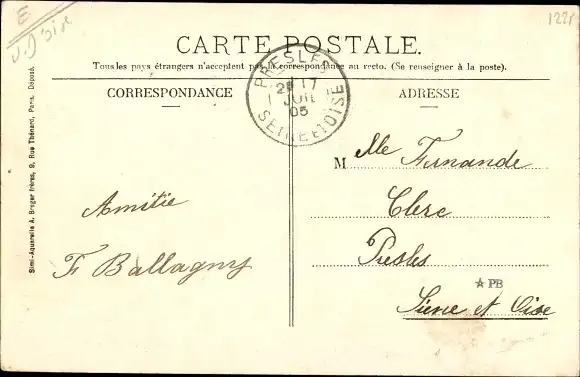 E
V. d'Oise
1221
CARTE POSTALE.
Tous les pays étrangers n'acceptent pas la correspondance au recto. (Se renseigner à la poste).
CORRESPONDANCE
ADRESSE
PRESLES
17
1 JUIL
05
SEINE ET OISE
Amitié
F Ballagny
Melle Fernande
Clerc
Presles
★ PB
Siene et Oise
Simi-Aquarelle A. Breger frères, 9, Rue Thénard, Paris. Déposé.